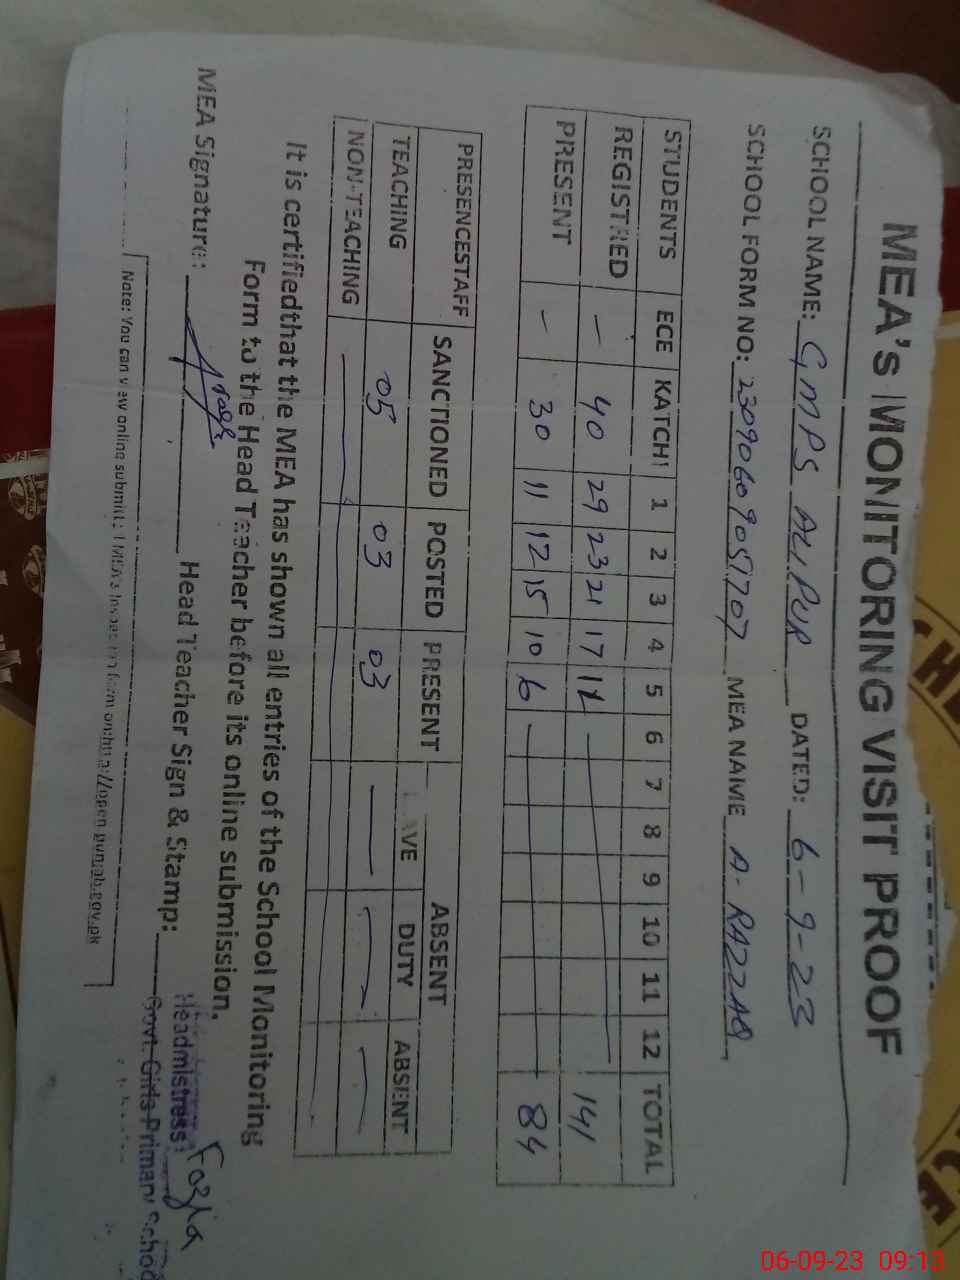 MEA's MONITORING VISIT PROOF
SCHOOL NAME: GMPS ALIPUR DATED: 6-9-23
SCHOOL FORM NO: 23090609051707 MEA NAME A-RAZZAQ
STUDENTS ECE KATCHI 1 2 3 4 5 6 7 8 9 10 11 12 TOTAL
REGISTRED - 40 29 23 21 17 11 141
PRESENT - 30 11 12 15 10 6 84
PRESENCESTAFF SANCTIONED POSTED PRESENT ABSENT
LEAVE DUTY ABSENT
TEACHING 05 03 03
NON-TEACHING
It is certifiedthat the MEA has shown all entries of the School Monitoring
Form to the Head Teacher before its online submission.
MEA Signature: Head Teacher Sign & Stamp: Fozia
Headmistress
Govt. Girls Primary School
Note: You can view online submitted MEA's Inspection form on:http://open.punjab.gov.pk
06-09-23 09:13